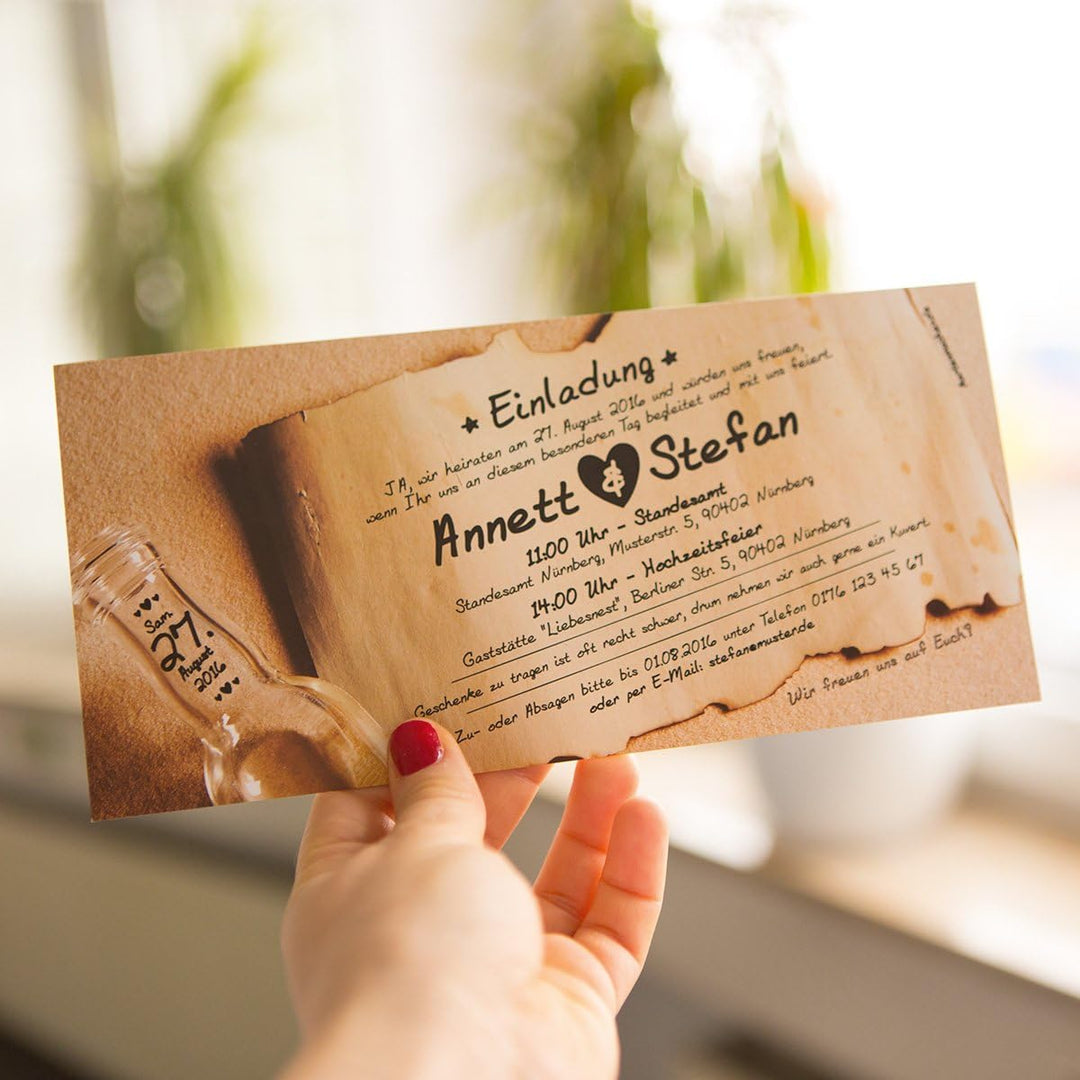 Einladung
JA, wir heiraten am 27. August 2016 und würden uns freuen,
wenn Ihr uns an diesem besonderen Tag begleitet und mit uns feiert.
Annett & Stefan
11:00 Uhr - Standesamt
Standesamt Nürnberg, Musterstr. 5, 90402 Nürnberg
14:00 Uhr - Hochzeitsfeier
Gaststätte "Liebesnest", Berliner Str. 5, 90402 Nürnberg
Geschenke zu tragen ist oft recht schwer, drum nehmen wir auch gerne ein Kuvert.
Zu- oder Absagen bitte bis 01.08.2016 unter Telefon 0176 123 45 67
oder per E-Mail: stefan@muster.de
Wir freuen uns auf Euch!
Sam.
27.
August
2016